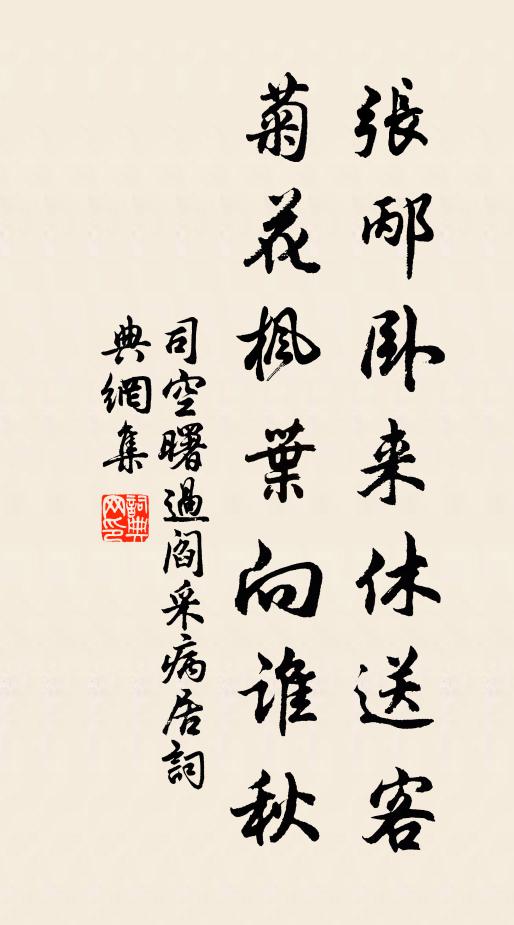 張邴卧来休送客
菊花楓葉向誰秋
司空曙過閻采病居詞
典網集
詞典網印